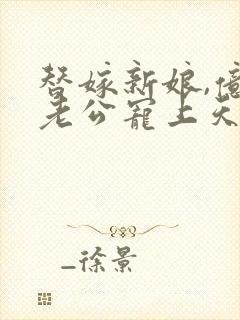 替嫁新娘,億
老公寵上天
_徐景